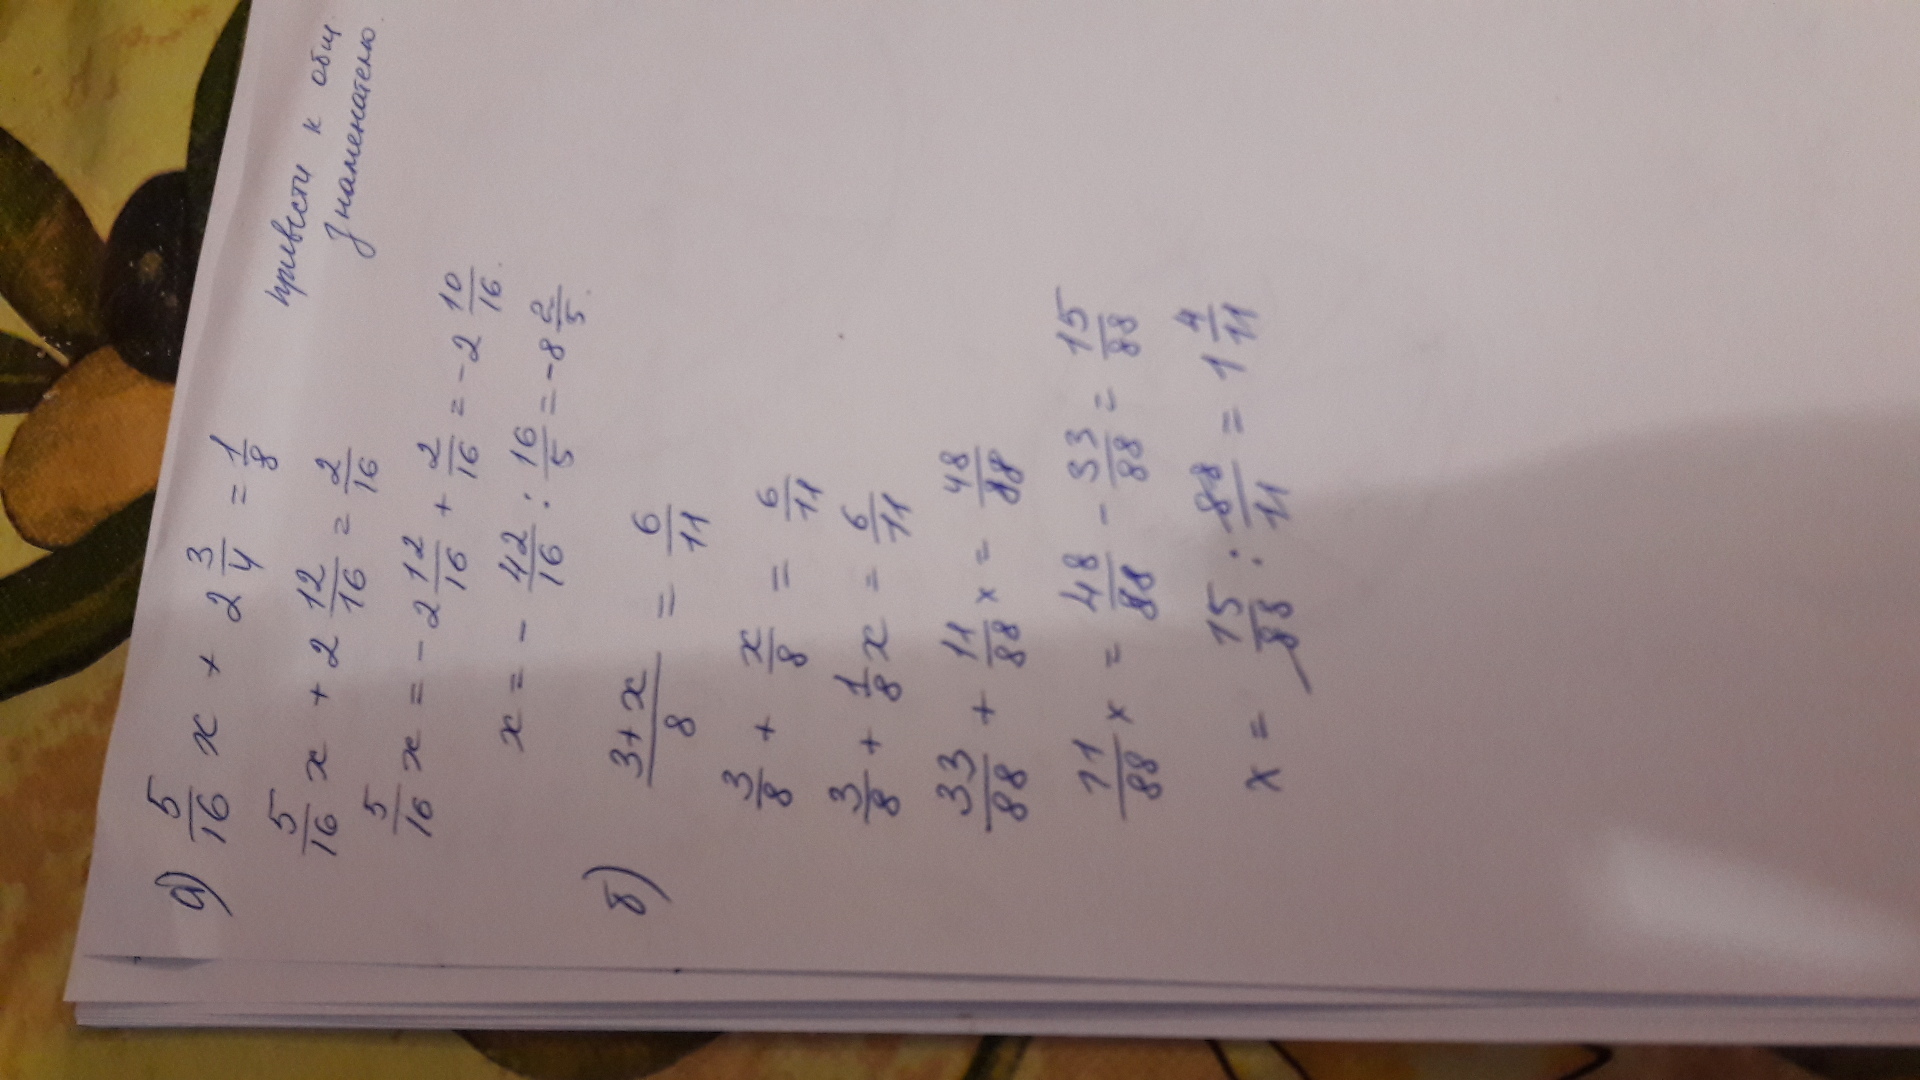 а) 5/16 x + 2 3/4 = 1/8
привести к общ.
знаменателю
5/16 x + 2 12/16 = 2/16
5/16 x = - 2 12/16 + 2/16 = - 2 10/16.
x = - 42/16 : 16/5 = - 8 2/5.
б) 3+x/8 = 6/11
3/8 + x/8 = 6/11
3/8 + 1/8 x = 6/11
33/88 + 11/88 x = 48/88
11/88 x = 48/88 - 33/88 = 15/88
x = 15/88 : 88/11 = 1 4/11